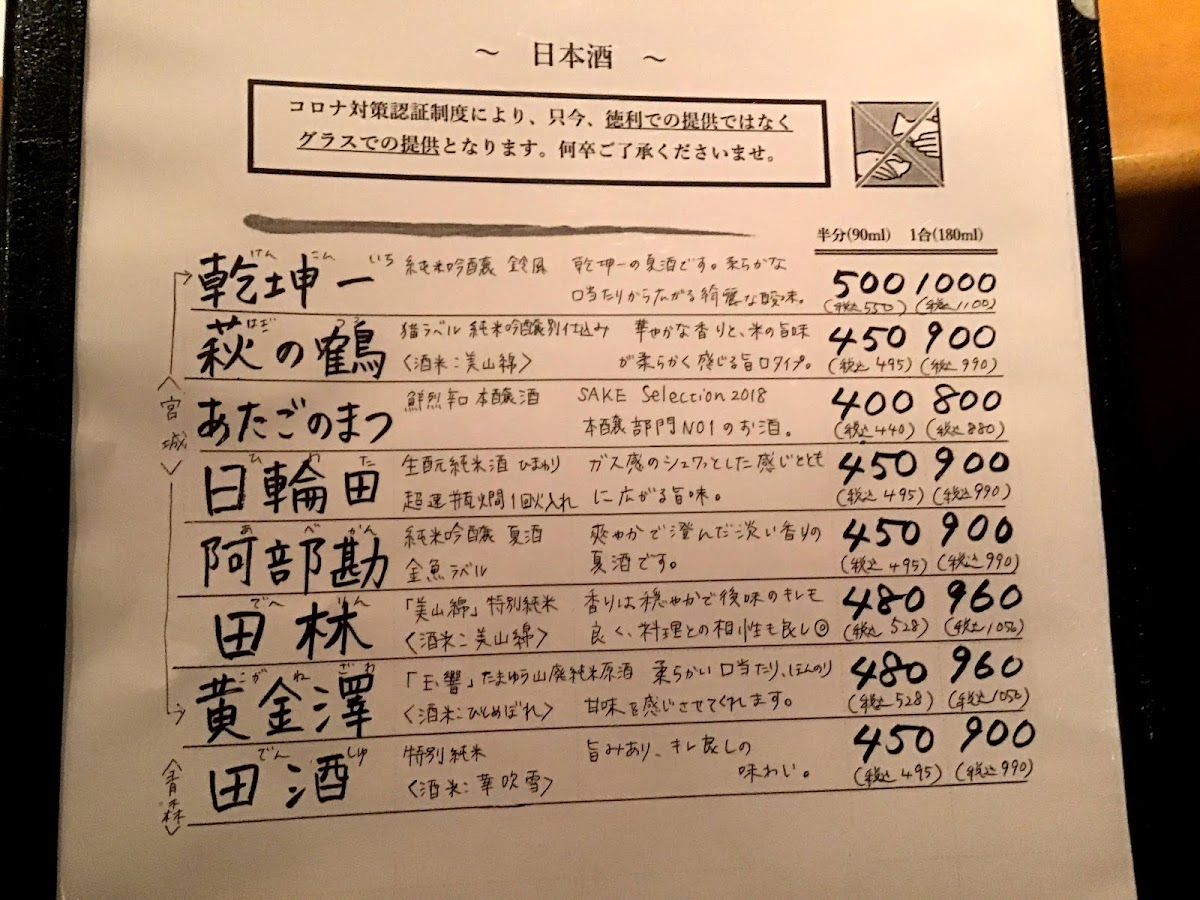 ～ 日本酒 ～
コロナ対策認証制度により、只今、徳利での提供ではなく
グラスでの提供となります。何卒ご了承くださいませ。
半分(90ml) 1合(180ml)
けん こん いち
乾坤一 純米吟醸 鈴風 乾坤一の夏酒です。柔らかな 500 1000
口当たりから広がる綺麗な酸味。 (税込550) (税込1100)
はぎ つる
萩の鶴 猫ラベル 純米吟醸別仕込み 華やかな香りと、米の旨味 450 900
〈酒米：美山錦〉 が柔らかく感じる旨口タイプ。 (税込495) (税込990)
あたごのまつ 鮮烈辛口 本醸酒 SAKE Selection 2018 400 800
本醸部門NO1のお酒。 (税込440) (税込880)
ひ わ た
日輪田 生酛純米酒 ひまわり ガス感のシュワッとした感じととも 450 900
超速瓶燗1回火入れ に広がる旨味。 (税込495) (税込990)
あ べ かん
阿部勘 純米吟醸 夏酒 爽やかで澄んだ淡い香りの 450 900
金魚ラベル 夏酒です。 (税込495) (税込990)
でん りん
田林 「美山錦」特別純米 香りは穏やかで後味のキレも 480 960
〈酒米：美山錦〉 良く、料理との相性も良し◎ (税込528) (税込1056)
こが ね ざわ
黄金澤 「玉響」たまゆら山廃純米原酒 柔らかい口当たり、ほんのり 480 960
〈酒米：ひとめぼれ〉 甘味を感じさせてくれます。 (税込528) (税込1056)
でん しゅ
田酒 特別純米 旨みあり、キレ良しの 450 900
〈酒米：華吹雪〉 味わい。 (税込495) (税込990)
〈宮城〉
〈青森〉